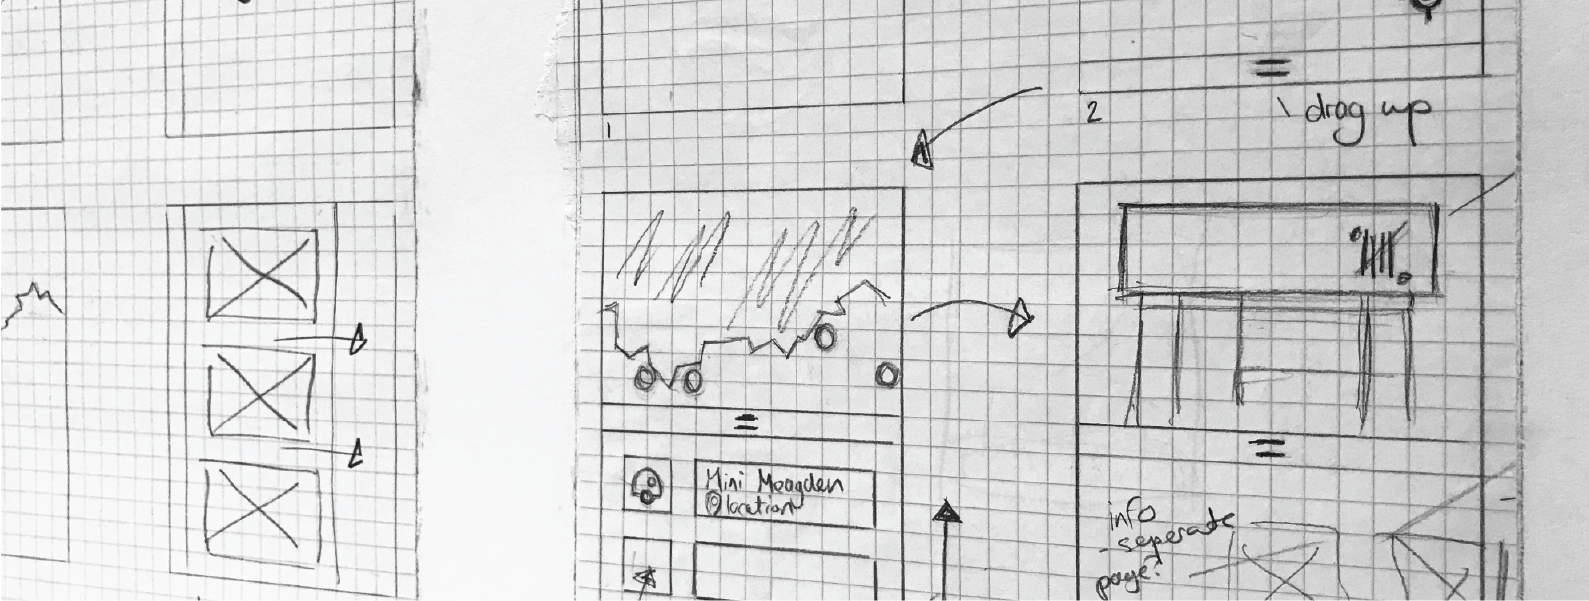 1
2
\ drag up
Mini Meagden
location
info
- seperate
page?